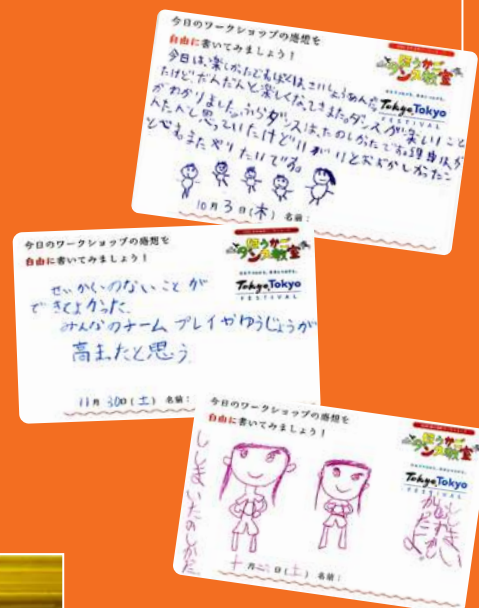 今日のワークショップの感想を
自由に書いてみましょう！
ダンス教室
Tokyo Tokyo
FESTIVAL
今日は、楽しかったどもぼくは、さいしょうあんだ
たけど、だんだんと楽しくなってきました。ダンスが楽しいこと
がわかりました。ふらダンスは、たのしかったです。
んたんと思っていたけどいがいとむずかしかったこ
とでもまたやりたいです。
10月3日(木) 名前：
今日のワークショップの感想を
自由に書いてみましょう！
ダンス教室
Tokyo Tokyo
FESTIVAL
せいかいのないことが
できてよかった。
みんなのチームプレイやゆうじょうが
高またと思う
11月30日(土) 名前：
今日のワークショップの感想を
自由に書いてみましょう！
ダンス教室
Tokyo Tokyo
FESTIVAL
ししまいたのしかた
(土) 名前：